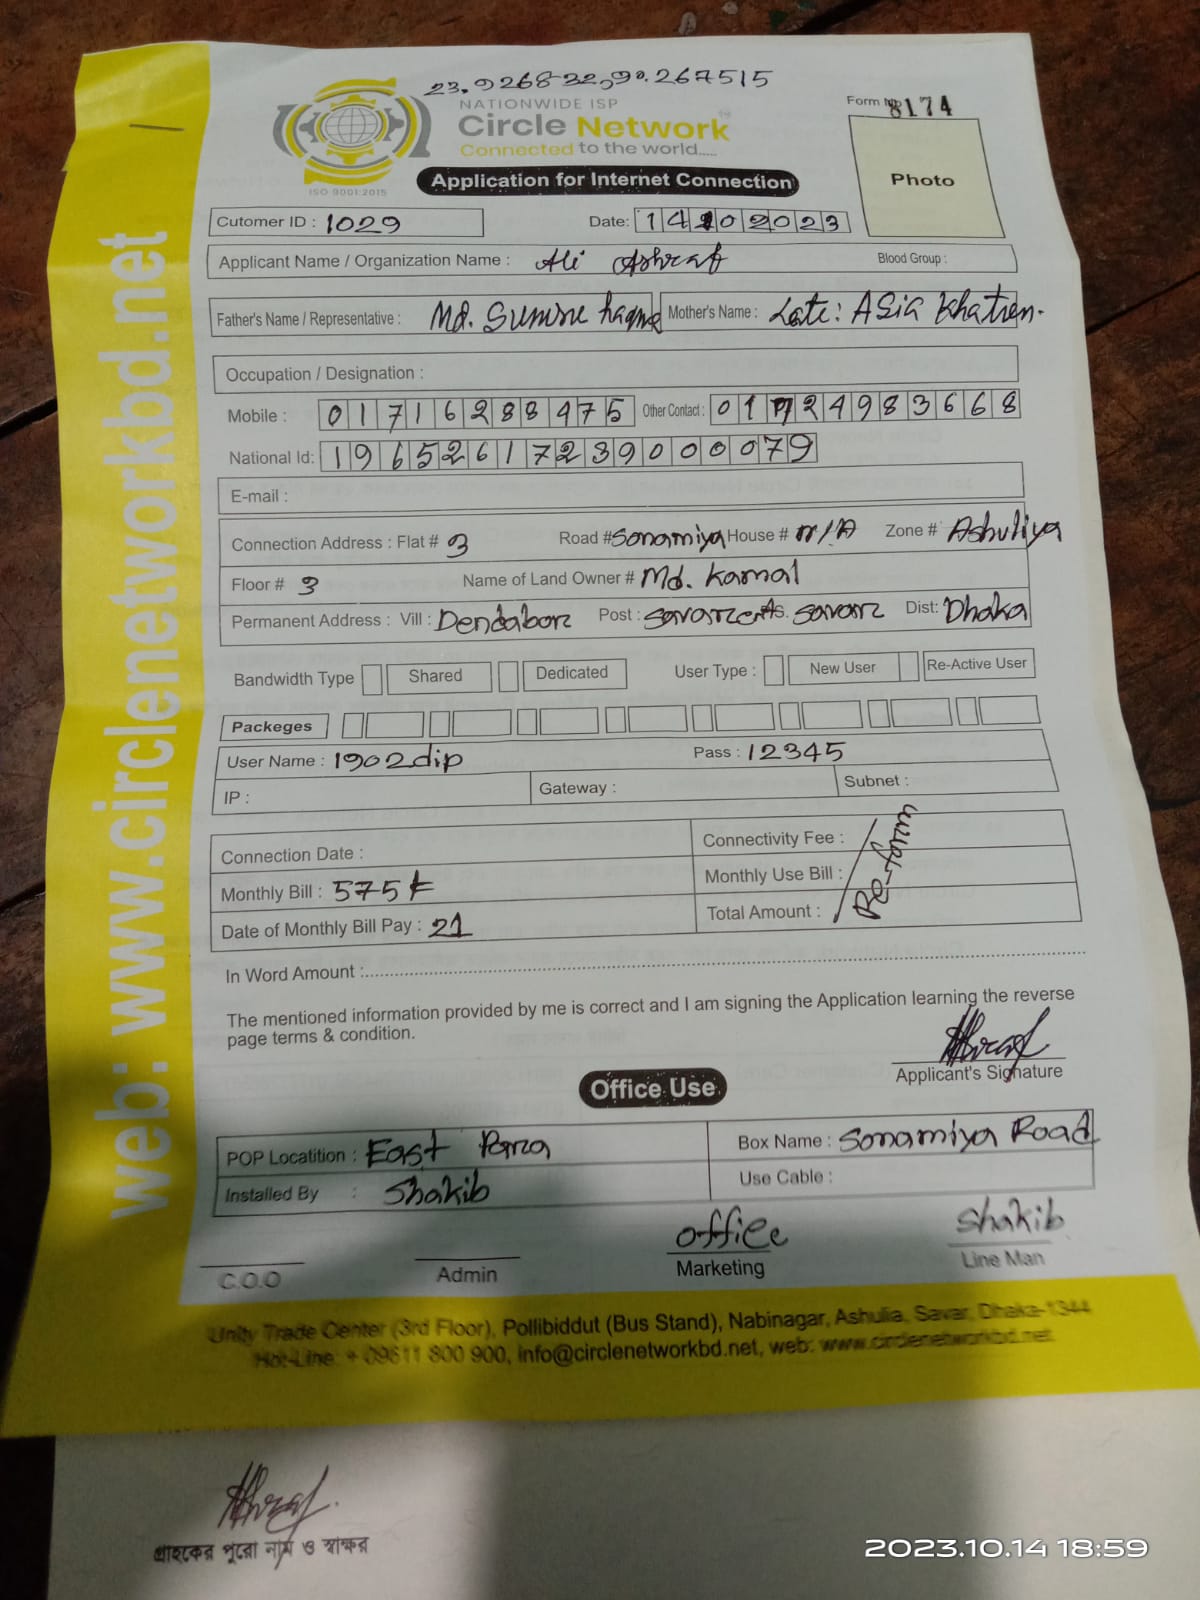 23.926832,90.267515
NATIONWIDE ISP
Form No 8174
Circle Network
Connected to the world.....
ISO 9001:2015
Application for Internet Connection
Photo
Cutomer ID : 1029 Date: 14102023
Applicant Name / Organization Name : Ali Ashraf Blood Group :
Father's Name / Representative : Md. haque Mother's Name : Late: Asia Khatun.
Occupation / Designation :
Mobile : 01716288475 Other Contact : 01724983668
National Id: 19652617239000079
E-mail :
Connection Address : Flat # 3 Road # Sonamiya House # N/A Zone # Ashuliya
Floor # 3 Name of Land Owner # Md. Kamal
Permanent Address : Vill : Dendabor Post : Savar Savar Dist: Dhaka
Bandwidth Type Shared Dedicated User Type : New User Re-Active User
Packeges
User Name : 1902dip Pass : 12345
IP : Gateway : Subnet :
Connection Date : Connectivity Fee :
Monthly Bill : 575 Monthly Use Bill :
Date of Monthly Bill Pay : 21 Total Amount :
Re-form
In Word Amount :
The mentioned information provided by me is correct and I am signing the Application learning the reverse
page terms & condition.
Applicant's Signature
Office Use
POP Locatition : East Para Box Name : Sonamiya Road
Installed By : Shakib Use Cable :
office Shakib
C.O.O Admin Marketing Line Man
Unity Trade Center (3rd Floor), Pollibiddut (Bus Stand), Nabinagar, Ashulia, Savar, Dhaka-1344
Hot-Line: + 09611 800 900, info@circlenetworkbd.net, web: www.circlenetworkbd.net
web: www.circlenetworkbd.net
গ্রাহকের পুরো নাম ও স্বাক্ষর
2023.10.14 18:59